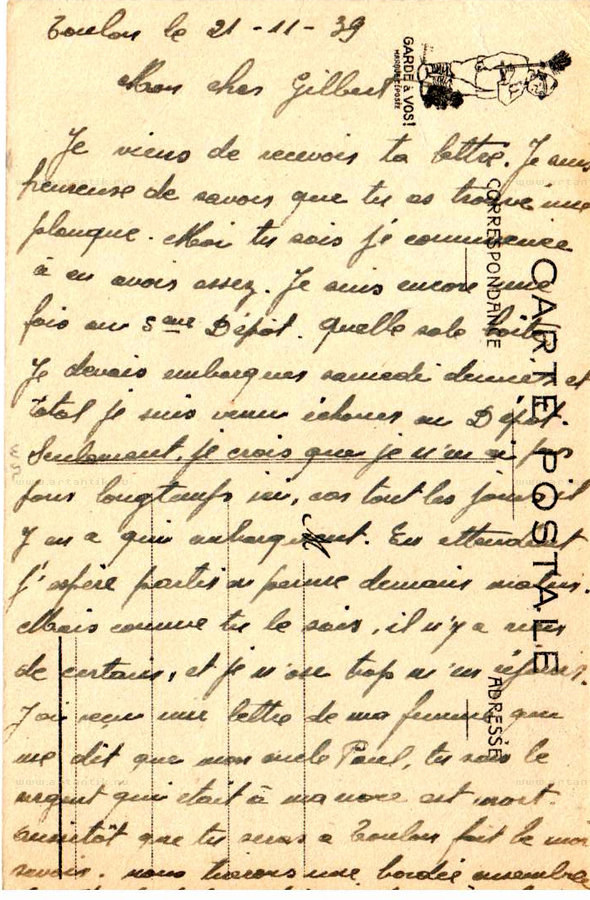 Toulon le 21-11-39
Mon cher Gilbert
Je viens de recevoir ta lettre. Je suis
heureuse de savoir que tu as trouvé une
planque. Moi tu sais je commence
à en avoir assez. Je suis encore une
fois au 5eme Dépôt. quelle sale boite
Je devais embarquer samedi dernier et
total je suis venu échouer au Dépôt.
Seulement, je crois que je n'en ai pas
pour longtemps ici, car tout les jours il
y en a qui embarquent. En attendant
j'espère partir en perme demain matin.
Mais comme tu le sais, il n'y a rien
de certain, et je n'ose trop m'en réjouir.
J'ai reçu une lettre de ma femme qui
me dit que mon oncle Paul, tu sais le
sergent qui était à est mort.
aussitôt que tu seras a Toulon fait le moi
savoir. nous tirerons une bordée ensemble
GARDE à VOS!
MARQUE DÉPOSÉE
CARTE POSTALE
CORRESPONDANCE
ADRESSE
M